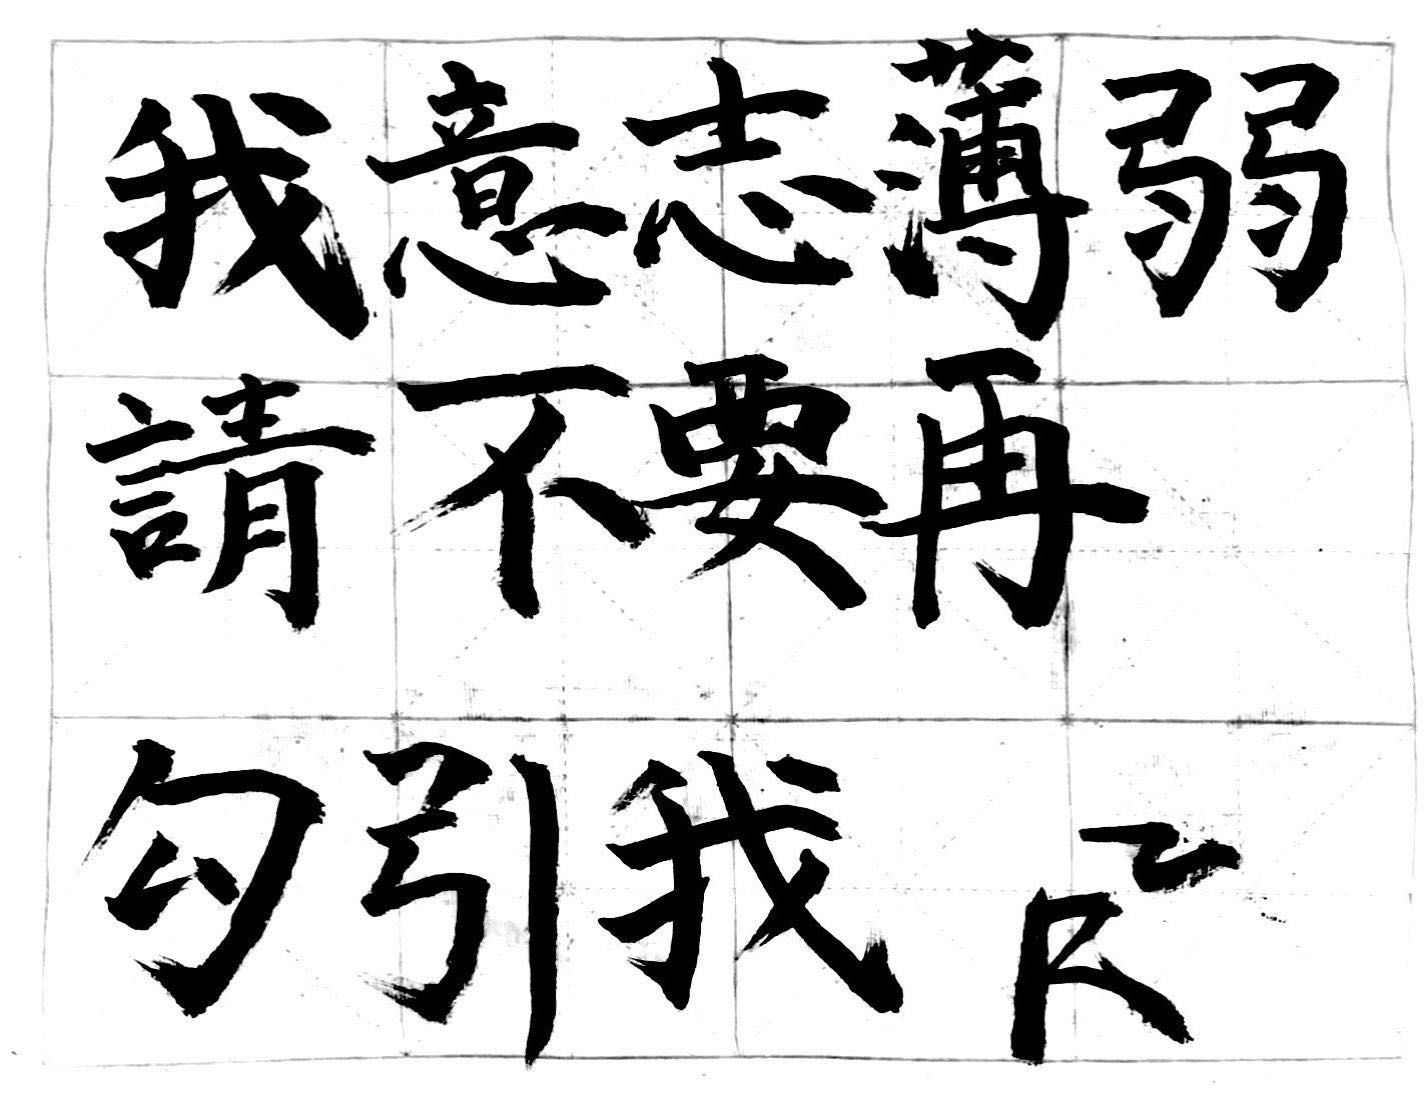 我意志薄弱
請不要再
勾引我